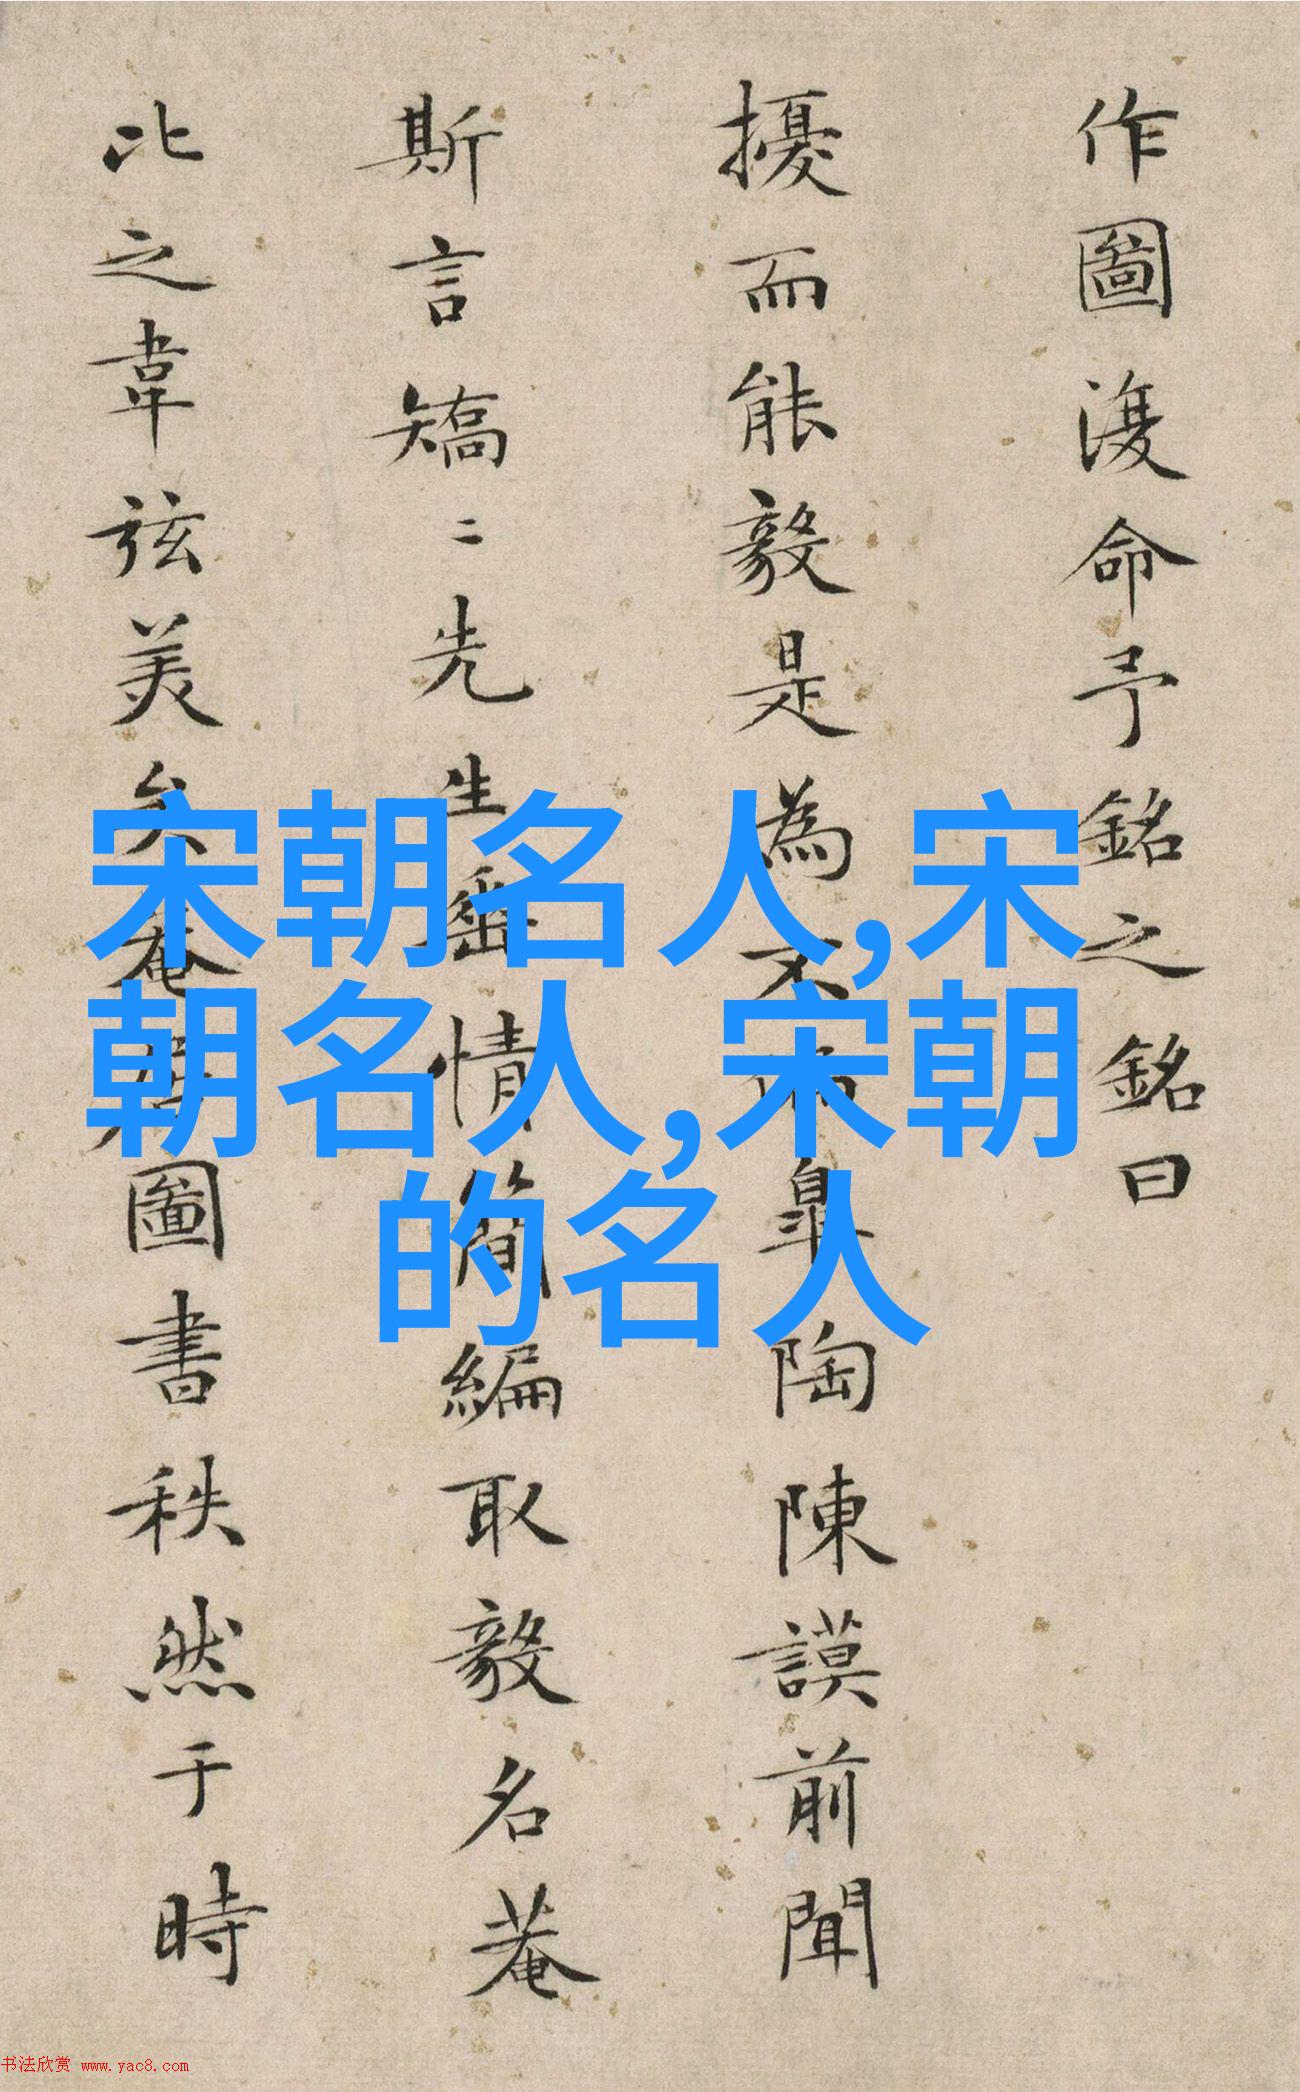 作圖復命予銘之銘曰
擾而能毅是為不皋陶陳謨前聞
斯言矯二先生垂情簡編取毅名菴
比之韋弦美矣菴居圖書秩然于時
宋朝名人,宋
朝名人,宋朝
的名人
书法欣赏 www.yac8.com